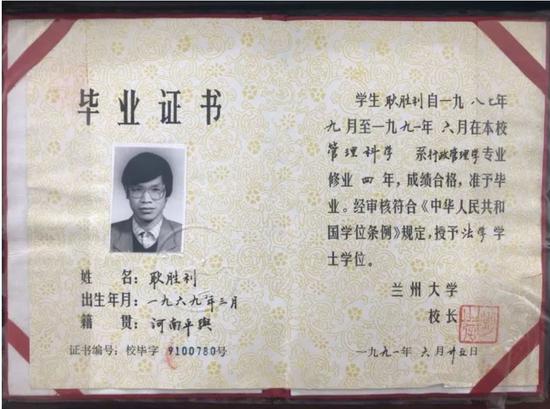 毕业证书
姓　名：耿胜利
出生年月：一九六九年三月
籍　贯：河南平舆
证书编号：校毕字9100780号
学生耿胜利自一九八七年
九月至一九九一年六月在本校
管理科学系行政管理学专业
修业四年，成绩合格，准予毕
业。经审核符合《中华人民共和
国学位条例》规定，授予法学学
士学位。
兰州大学
校长
一九九一年六月廿五日